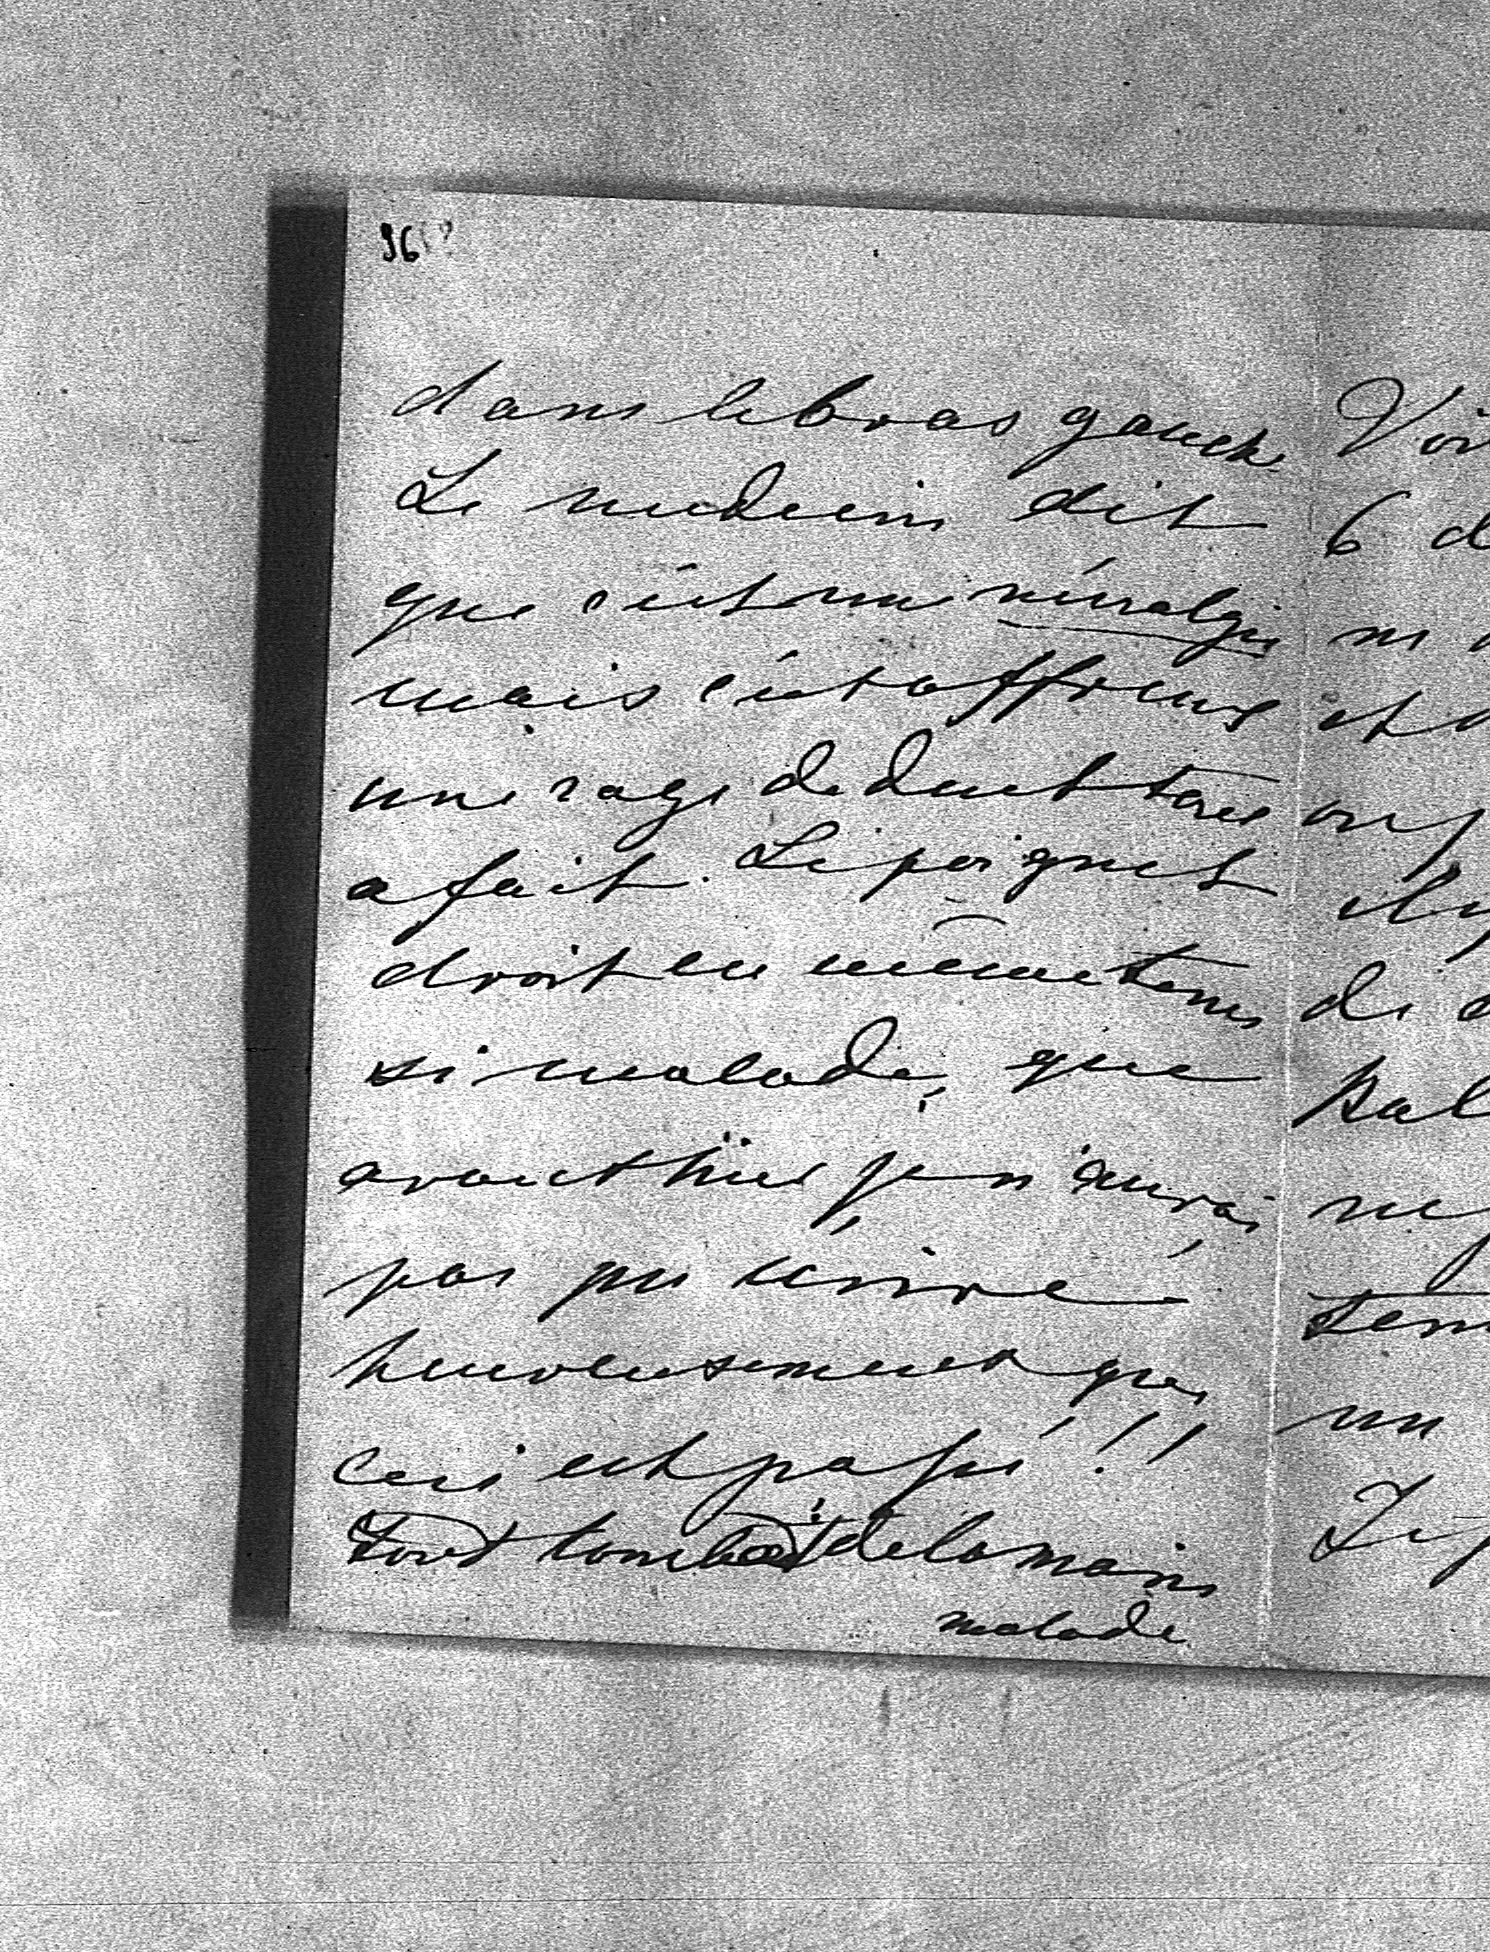 96
dans le bras gauche
Le medecin dit
que c'est une névralgie
mais c'est affreux
une rage de dent tout
a fait. Le poignet
droit en même tems
si malade, que
avant hier je n'aurai
pas pu écrire
heureusement que
ceci est passé!!
Tout tombait de la main
malade
Voi
6 d
ne
et
on
il y
de
Bal
ne
tem
un
Le